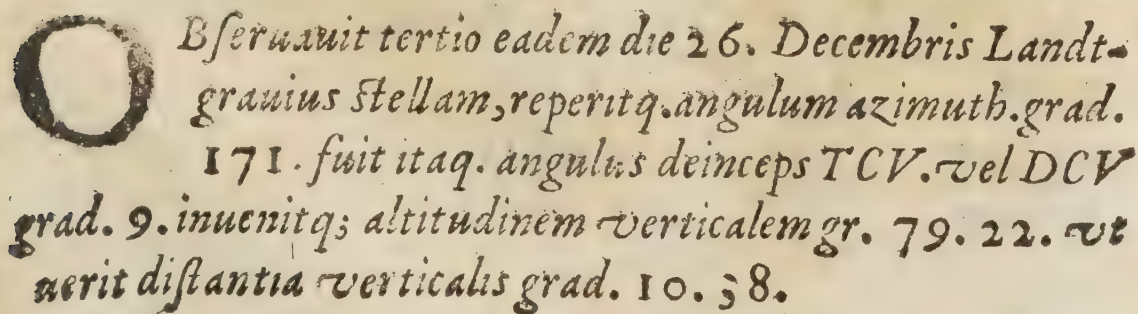 OBſeruauit tertio eadem die 26. Decembris Landt-
grauius ſtellam, reperitq. angulum azimuth. grad.
171. fuit itaq. angulus deinceps TCV. vel DCV
grad. 9. inuenitq; altitudinem verticalem gr. 79. 22. vt
uerit diſtantia verticalis grad. 10. 38.